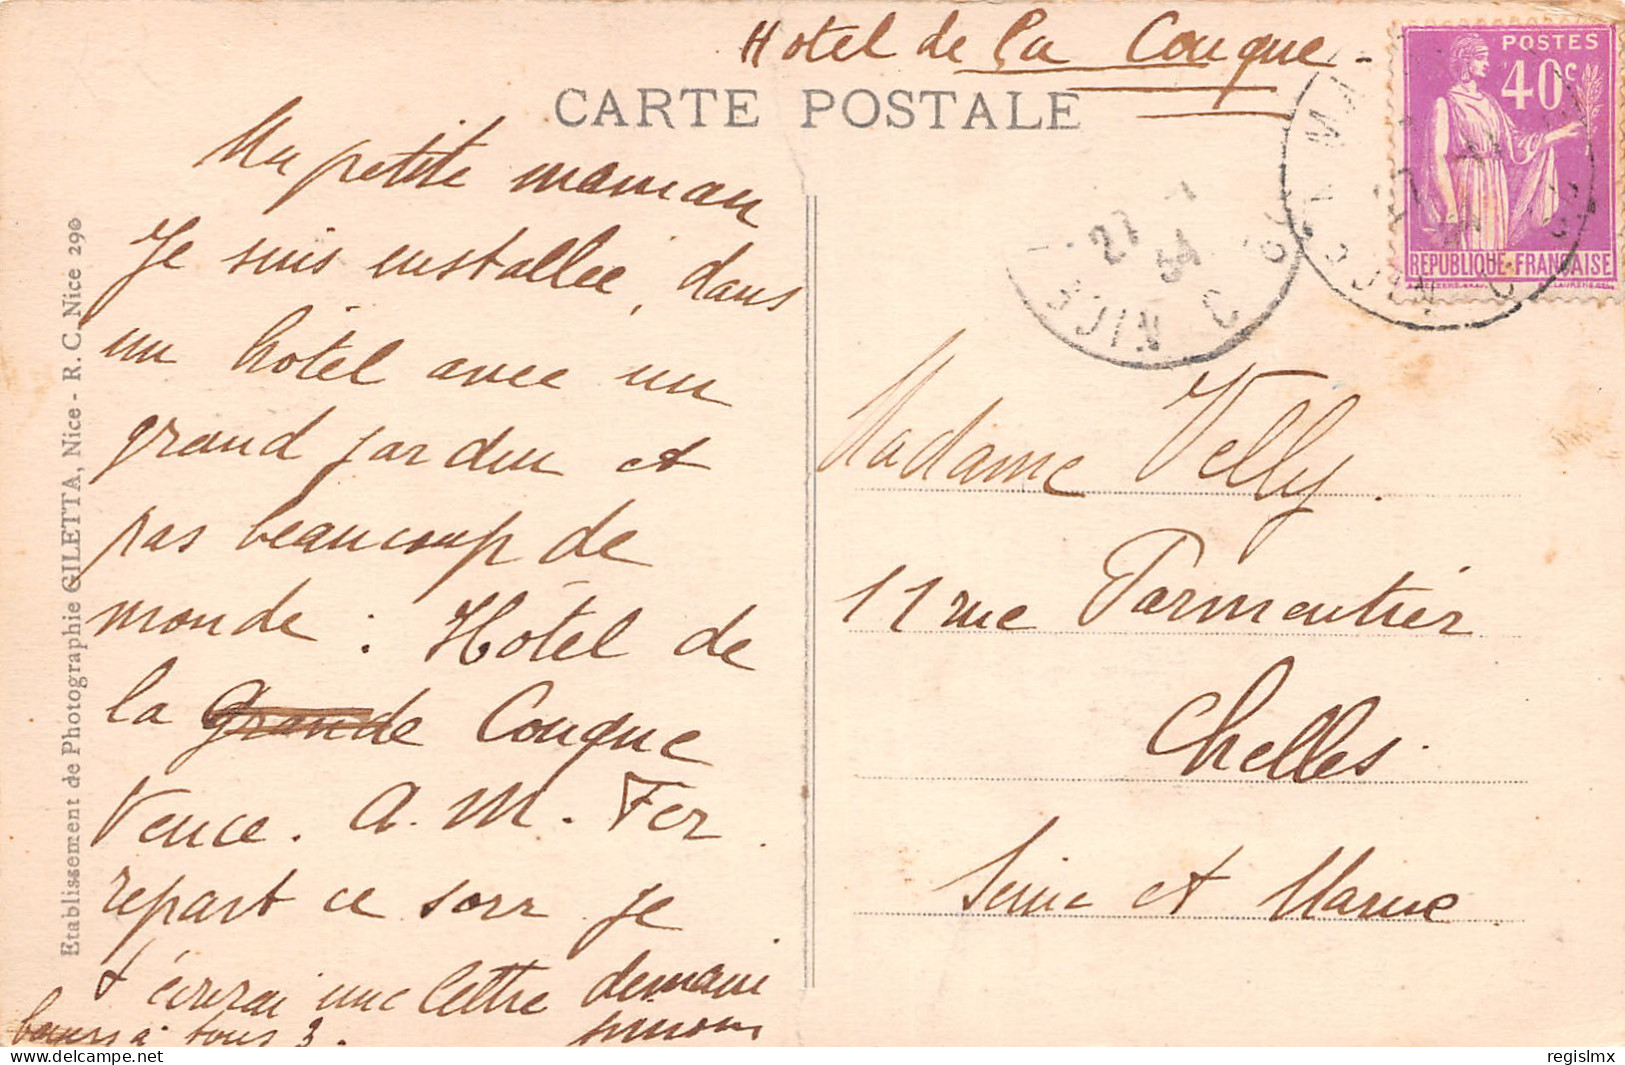 Hotel de la Conque -
CARTE POSTALE
Ma petite maman
Je suis installée, dans
un hôtel avec un
grand jardin et
pas beaucoup de
monde : Hôtel de
la grande Conque
Vence. A. M. Fer
repart ce soir. Je
t'écrirai une lettre demain
à tous 3.
POSTES
40c
REPUBLIQUE-FRANÇAISE
27 - 1
34
Madame Velly.
11 rue Parmentier
Chelles.
Seine et Marne
Etablissement de Photographie GILETTA, Nice - R. C. Nice 290
regislmx